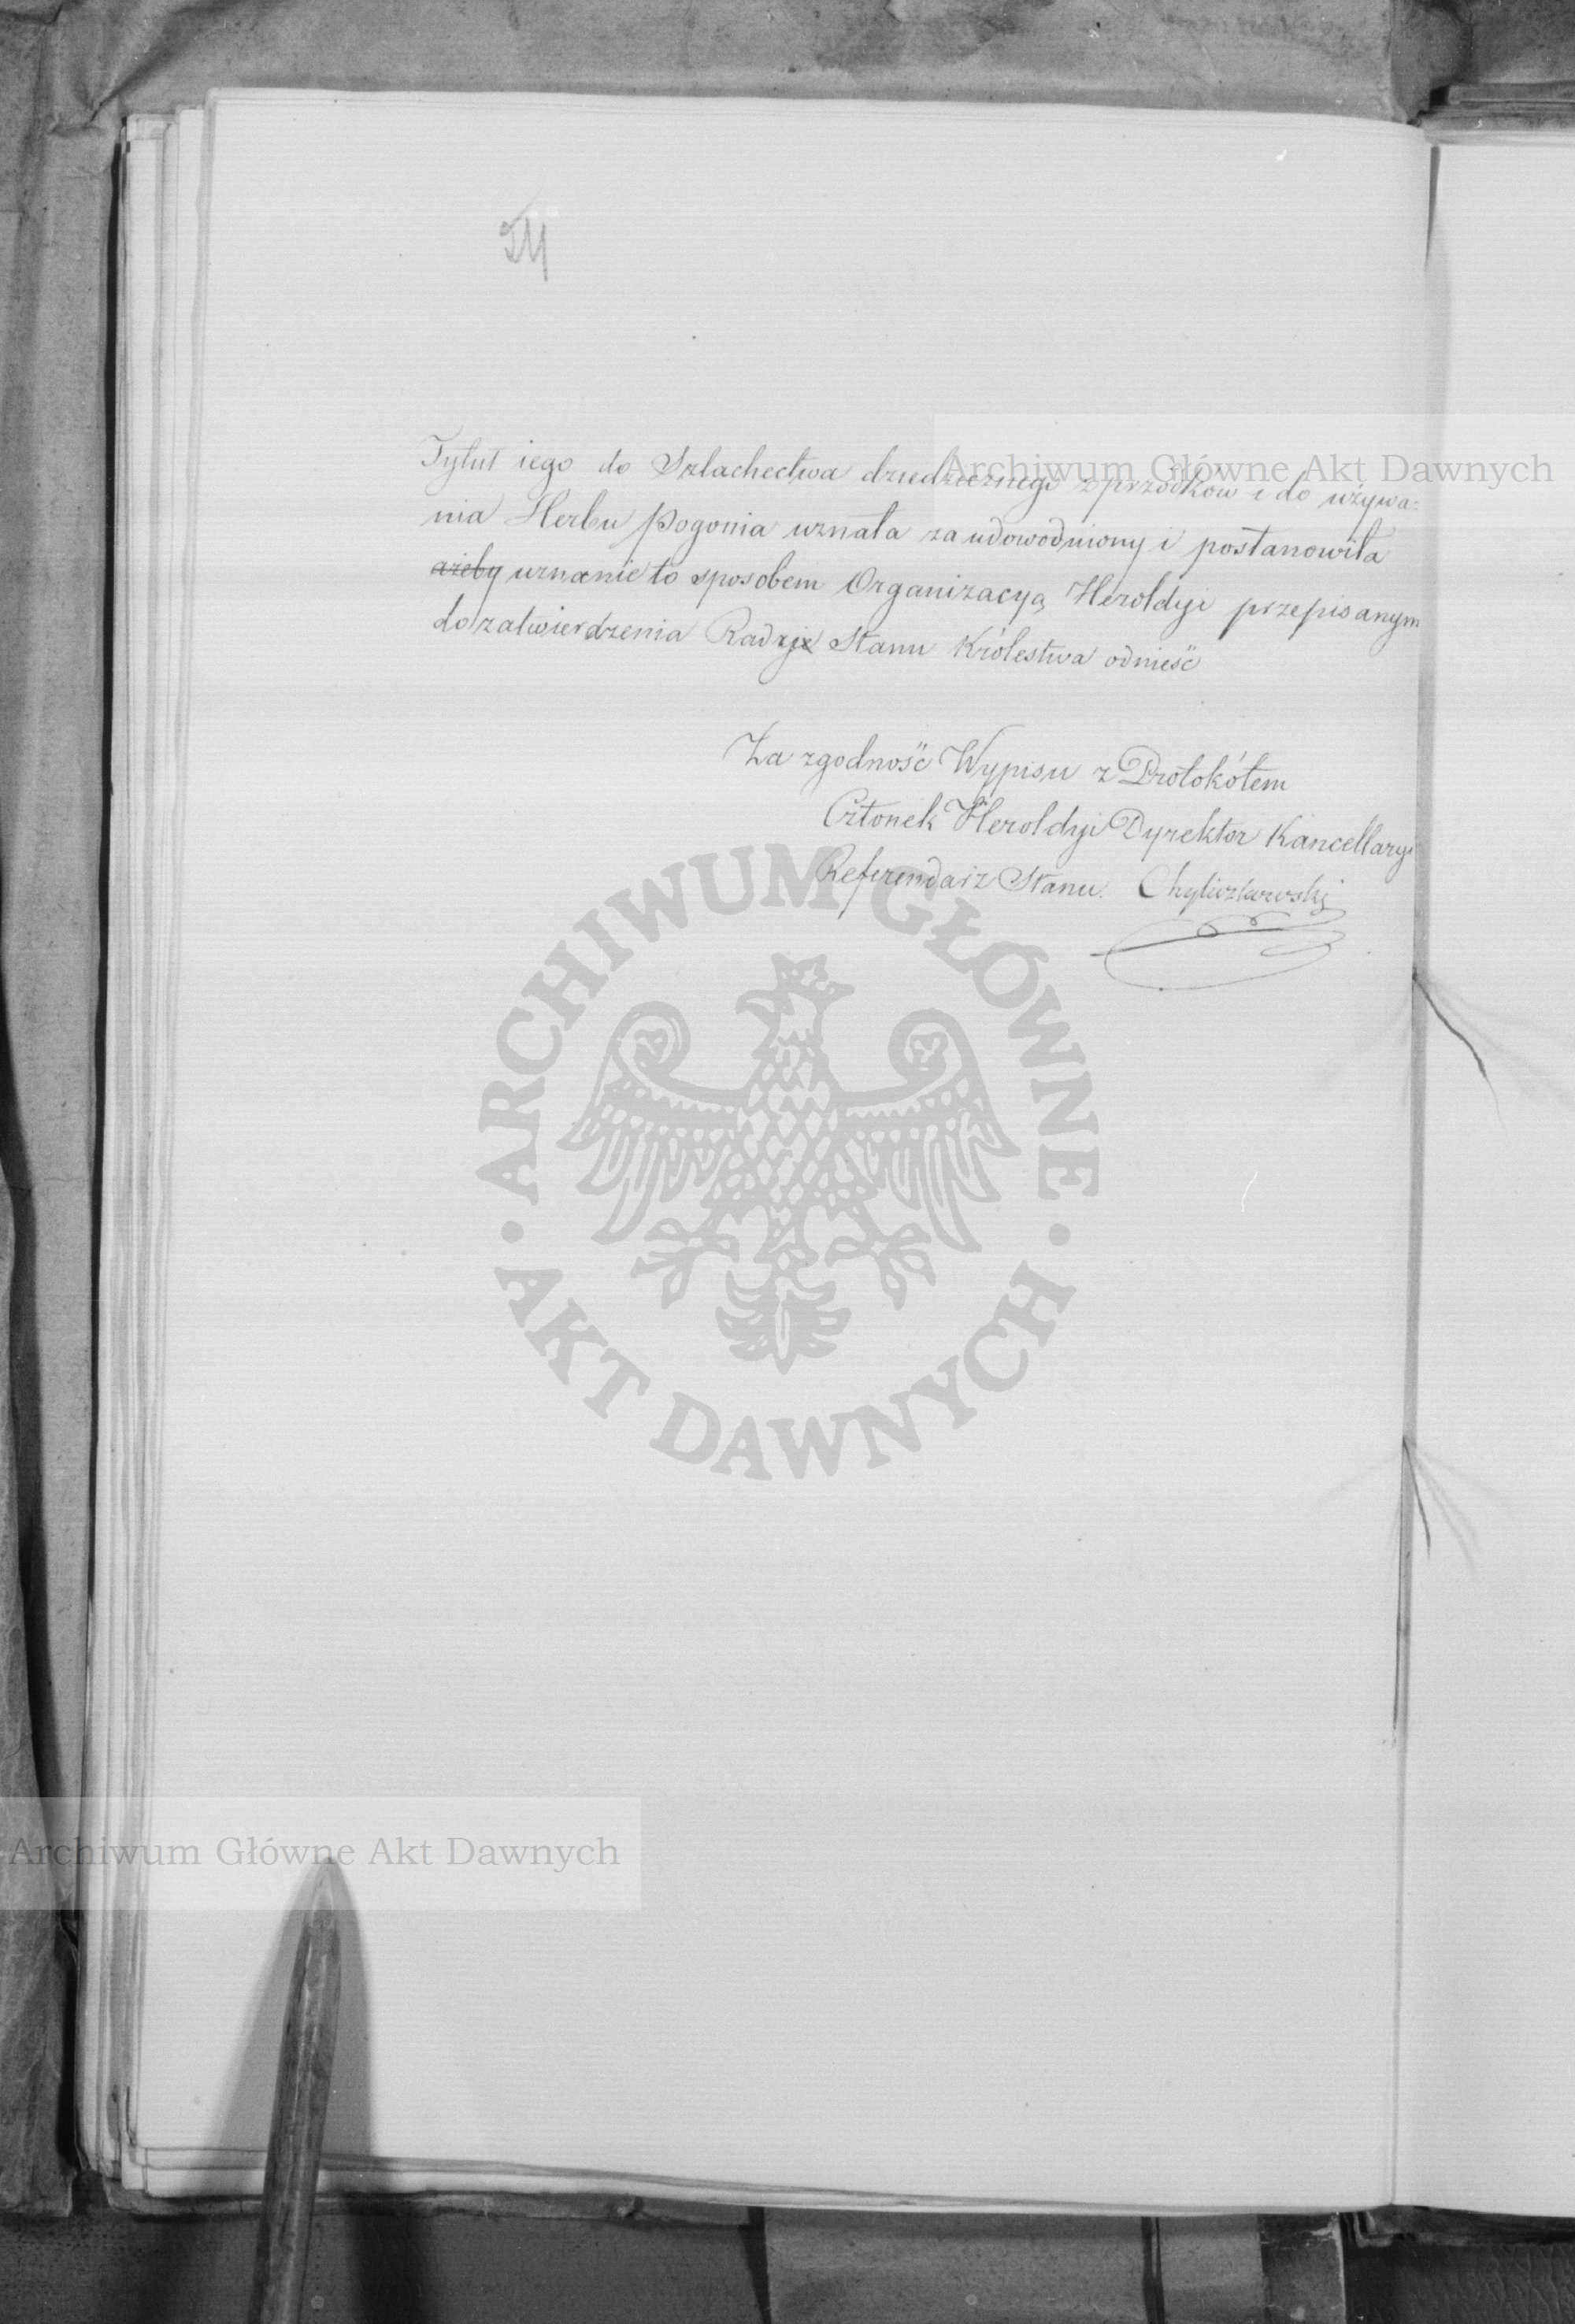 Tytuł iego do Szlachectwa dziedzicznego z przodków i do używa:
nia Herbu Pogonia uznała za udowodniony i postanowiła
ażeby uznanie to sposobem Organizacyą Heroldyi przepisanym
do zatwierdzenia Radzie Stanu Królestwa odnieść
Za zgodność Wypisu z Protokółem
Członek Heroldyi Dyrektor Kancellaryi
Referendarz Stanu. Chyliczkowski
Archiwum Główne Akt Dawnych
ARCHIWUM GŁÓWNE · AKT DAWNYCH ·
Archiwum Główne Akt Dawnych